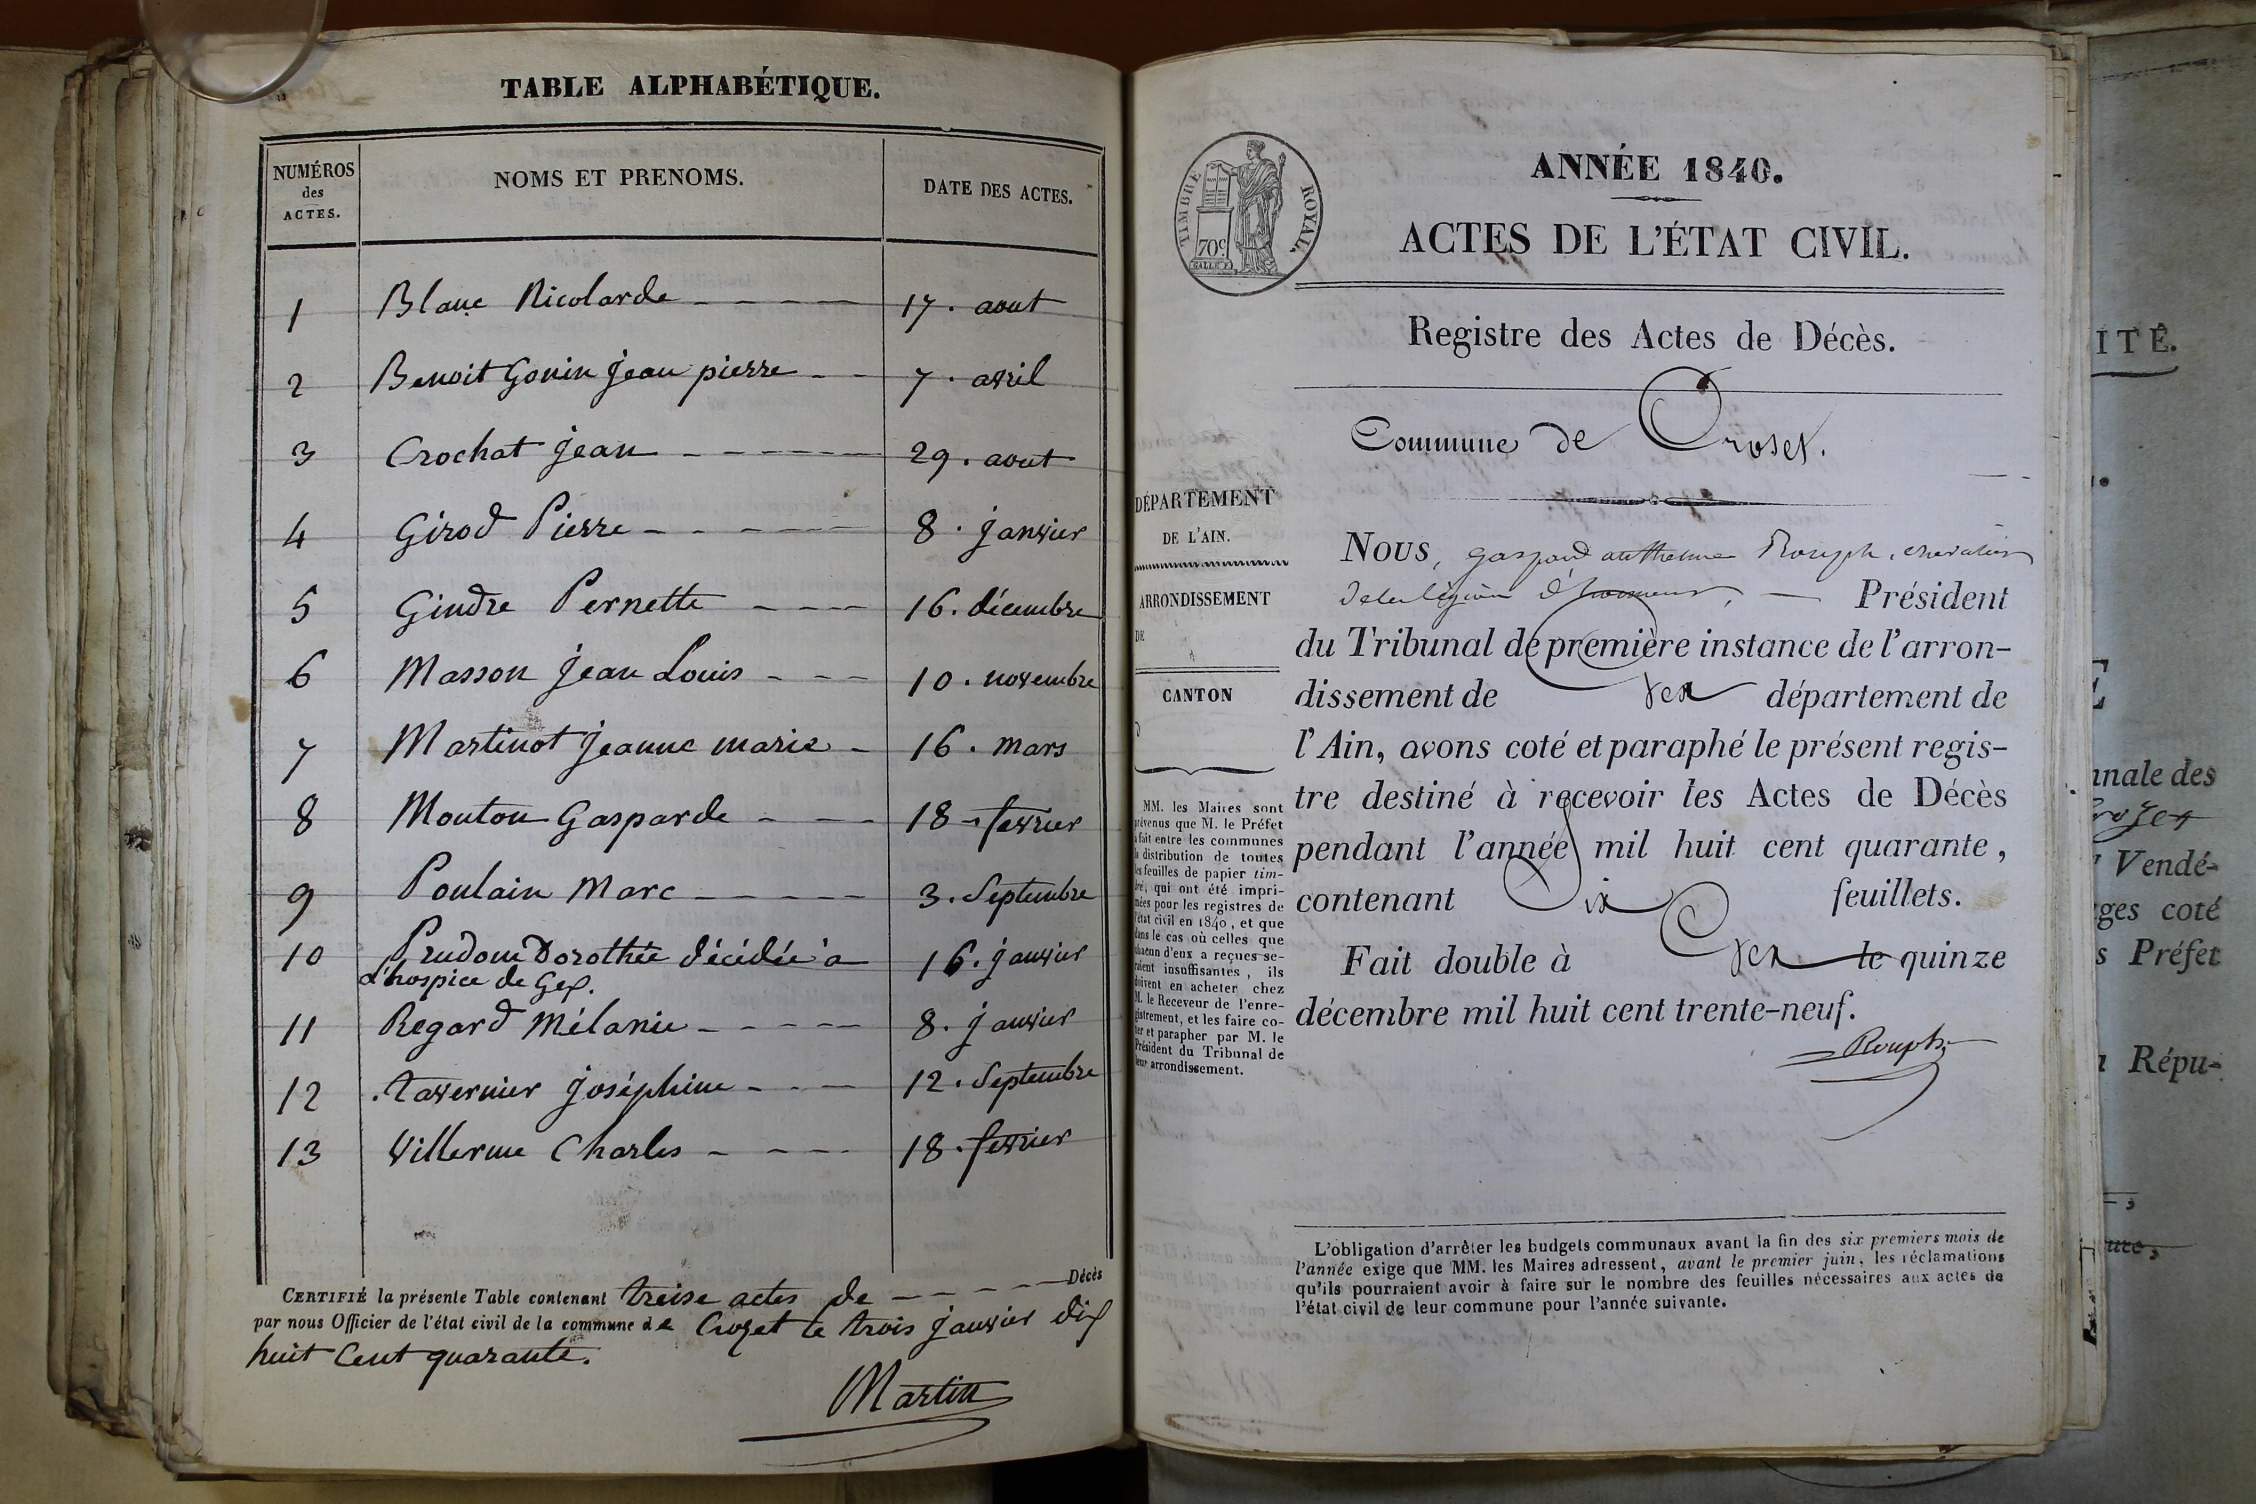 TABLE ALPHABÉTIQUE.
NUMÉROS des ACTES. NOMS ET PRENOMS. DATE DES ACTES.
1 Blanc Nicolarde 17. aout
2 Benoit Gonin jean pierre 7. avril
3 Crochat jean 29. aout
4 Girod Pierre 8. janvier
5 Gindre Pernette 16. décembre
6 Masson jean Louis 10. novembre
7 Martinot jeanne marie 16. mars
8 Mouton Gasparde 18 fevrier
9 Poulain Marc 3. Septembre
10 Prudom Dorothée décédée à 16. janvier
L'hospice de Gex.
11 Regard Mélanie 8. janvier
12 Tavernier joséphine 12. Septembre
13 Villerme Charles 18. fevrier
CERTIFIÉ la présente Table contenant treise actes de Décès
par nous Officier de l'état civil de la commune de Crozet le trois janvier dix
huit Cent quarante.
Martin
TIMBRE ROYAL.
70c
ANNÉE 1840.
ACTES DE L'ÉTAT CIVIL.
Registre des Actes de Décès.
Commune de Croset.
DÉPARTEMENT
DE L'AIN.
ARRONDISSEMENT
DE
CANTON
D
MM. les Maires sont
prévenus que M. le Préfet
a fait entre les communes
la distribution de toutes
les feuilles de papier tim-
bré, qui ont été impri-
mées pour les registres de
l'état civil en 1840, et que
dans le cas où celles que
chacun d'eux a reçues se-
raient insuffisantes, ils
doivent en acheter chez
M. le Receveur de l'enre-
gistrement, et les faire co-
ter et parapher par M. le
Président du Tribunal de
leur arrondissement.
NOUS, gaspard anthelme Rouph, chevalier
de la légion d'honneur, Président
du Tribunal de première instance de l'arron-
dissement de Gex département de
l'Ain, avons coté et paraphé le présent regis-
tre destiné à recevoir les Actes de Décès
pendant l'année mil huit cent quarante,
contenant Six feuillets.
Fait double à Gex le quinze
décembre mil huit cent trente-neuf.
Rouph
L'obligation d'arrêter les budgets communaux avant la fin des six premiers mois de
l'année exige que MM. les Maires adressent, avant le premier juin, les réclamations
qu'ils pourraient avoir à faire sur le nombre des feuilles nécessaires aux actes de
l'état civil de leur commune pour l'année suivante.
ITÉ.
nnale des
Vendé-
ges coté
s Préfet
Répu-